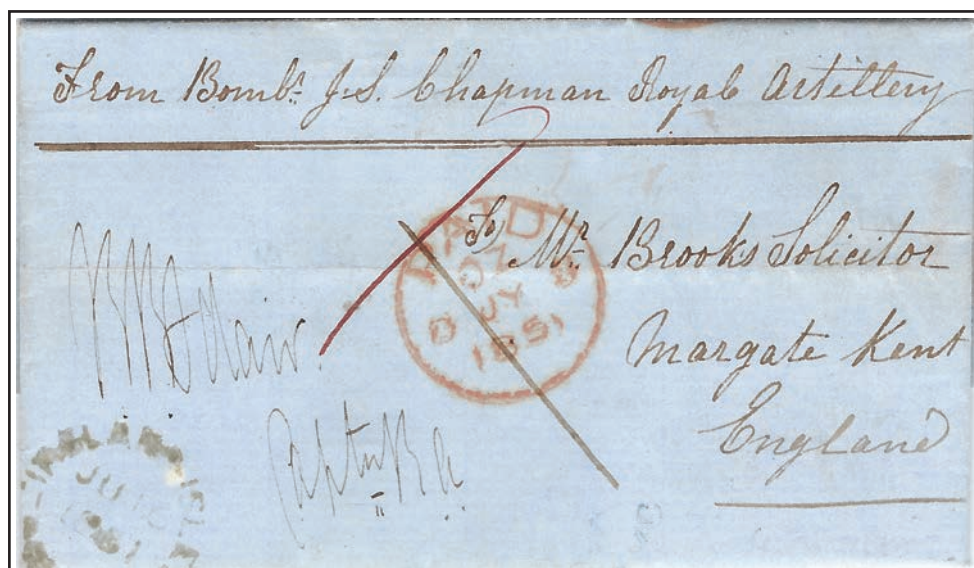 From Bombr. J.S. Chapman Royal Artillery
To Mr. Brooks Solicitor
Margate Kent
England
PAID
JY
1851
Captn RA